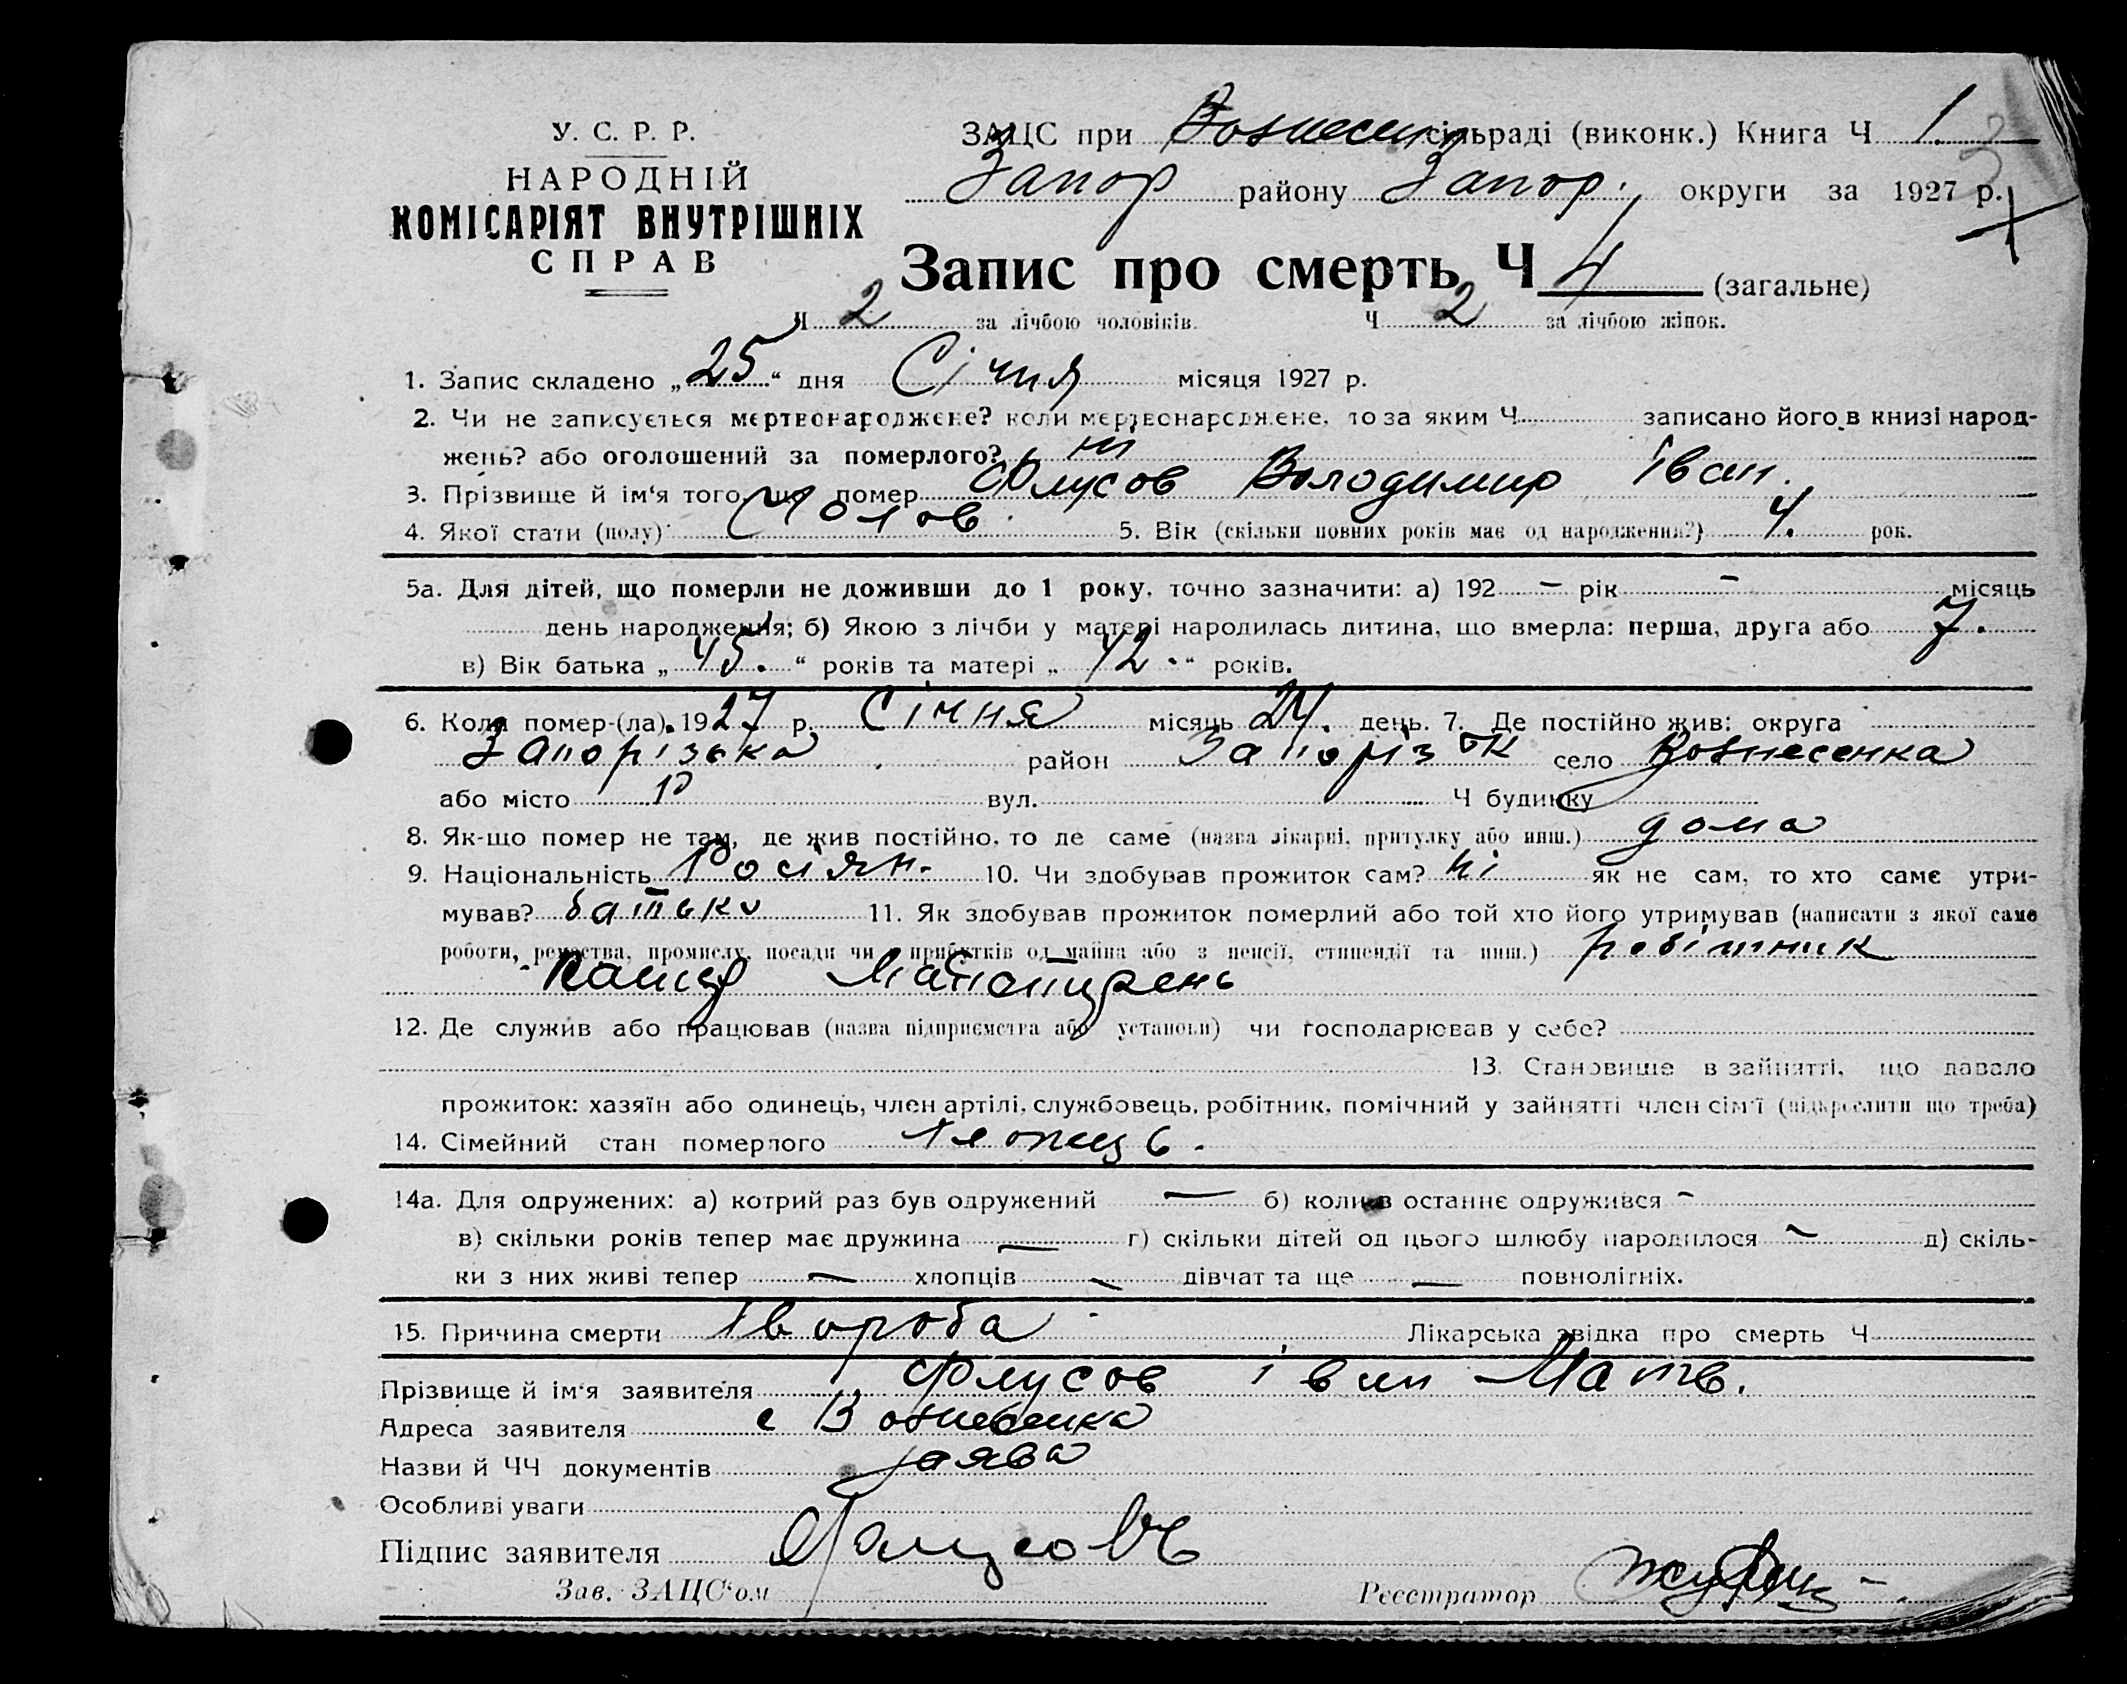 У. С. Р. Р.
НАРОДНІЙ
КОМІСАРІЯТ ВНУТРІШНІХ
СПРАВ
ЗАЦС при Вознесен сільраді (виконк.) Книга Ч 1.
Запор району Запор. округи за 1927 р.
Запис про смерть Ч 4 (загальне)
Ч 2 за лічбою чоловіків. Ч 2 за лічбою жінок.
1. Запис складено „25“ дня Січня місяця 1927 р.
2. Чи не записується мертвонароджене? коли мертвонароджене, то за яким Ч записано його в книзі народ-
жень? або оголошений за померлого? ні
3. Прізвище й ім‘я того, що помер Флусов Володимир Іван.
4. Якої стати (полу) Чолов. 5. Вік (скільки повних років має од народження?) 4. рок.
5а. Для дітей, що померли не доживши до 1 року, точно зазначити: а) 192 – рік – місяць
день народження; б) Якою з лічби у матері народилась дитина, що вмерла: перша, друга або 7.
в) Вік батька „45.“ років та матері „42.“ років.
6. Коли помер-(ла). 1927 р. Січня місяць 24. день. 7. Де постійно жив: округа
Запорізька район Запорізьк село Вознесенка
або місто вул. Ч будинку
8. Як-що помер не там, де жив постійно, то де саме (назва лікарні, притулку або инш.) дома
9. Національність Росіян. 10. Чи здобував прожиток сам? ні як не сам, то хто саме утри-
мував? батько 11. Як здобував прожиток померлий або той хто його утримував (написати з якої саме
роботи, ремества, промислу, посади чи з прибутків од майна або з пенсії, стипендії та инш.) робітник
12. Де служив або працював (назва підприємства або установи) чи господарював у себе?
13. Становище в зайнятті, що давало
прожиток: хазяїн або одинець, член артілі, службовець, робітник, помічний у зайнятті член сім‘ї (підкреслити що треба)
14. Сімейний стан померлого
14а. Для одружених: а) котрий раз був одружений — б) коли в останнє одружився –
в) скільки років тепер має дружина — г) скільки дітей од цього шлюбу народилося – д) скіль-
ки з них живі тепер — хлопців – дівчат та ще — повнолітніх.
15. Причина смерти Хвороба Лікарська звідка про смерть Ч
Прізвище й ім‘я заявителя Флусов Іван Матв.
Адреса заявителя с Вознесенка
Назви й ЧЧ документів заява
Особливі уваги
Підпис заявителя
Зав. ЗАЦС‘ом Реєстратор